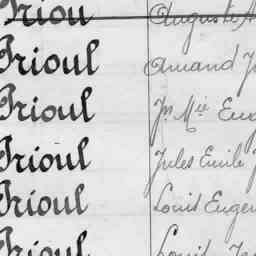 Auguste
Trioul Amand
Trioul Jn Mie
Trioul Jules Emile
Trioul Louis Eugen
Trioul Louis